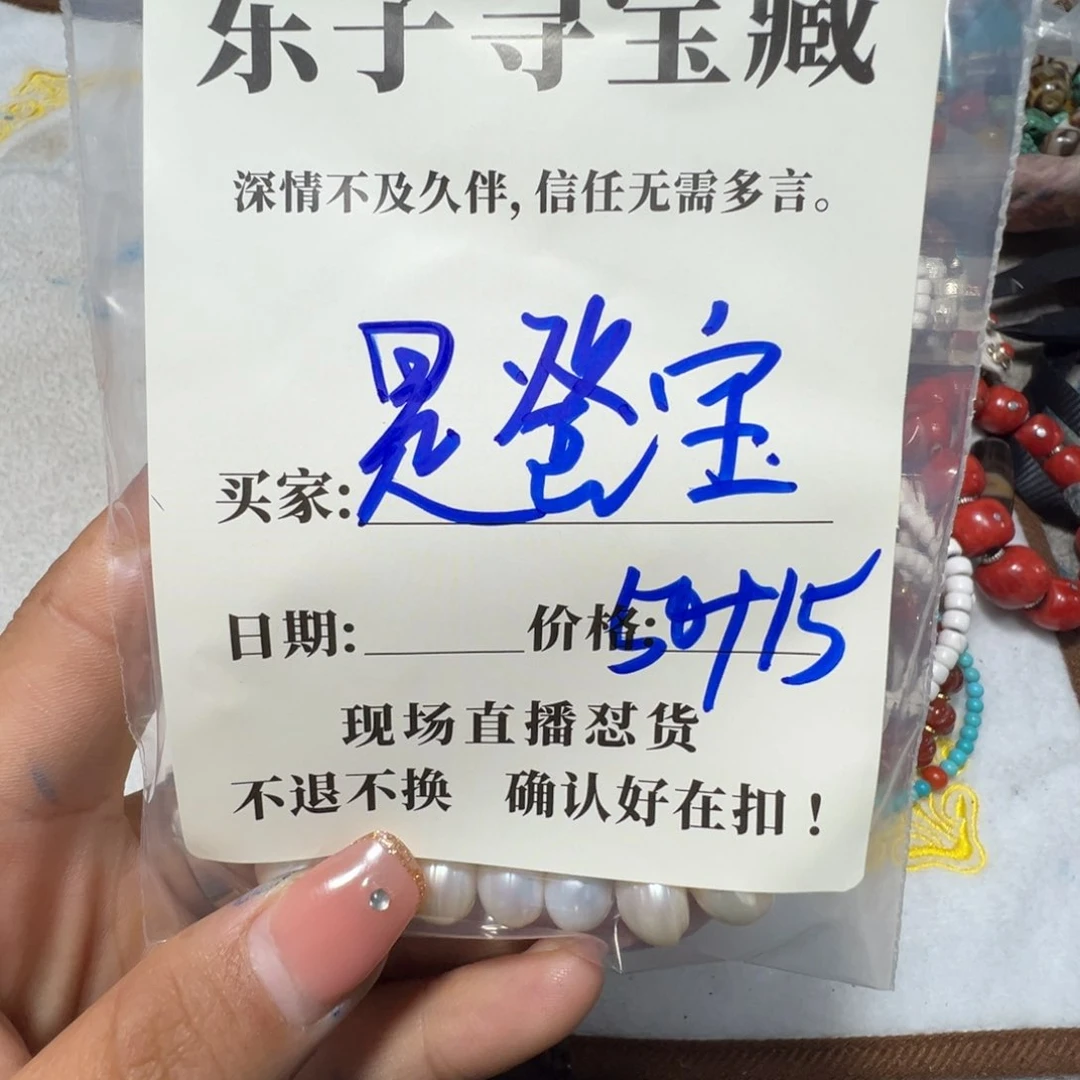 东子寻宝藏
深情不及久伴，信任无需多言。
买家:是瑩宝
日期: 价格:50+15
现场直播怼货
不退不换 确认好在扣！